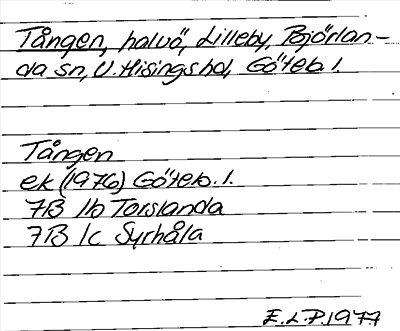 Tången, halvö, Lilleby, Björlan-
da sn, V. Hisings hd, Göteb. l.
Tången
ek (1976) Göteb. l.
7B 1b Torslanda
7B 1c Syrhåla
E.L.P. 1977